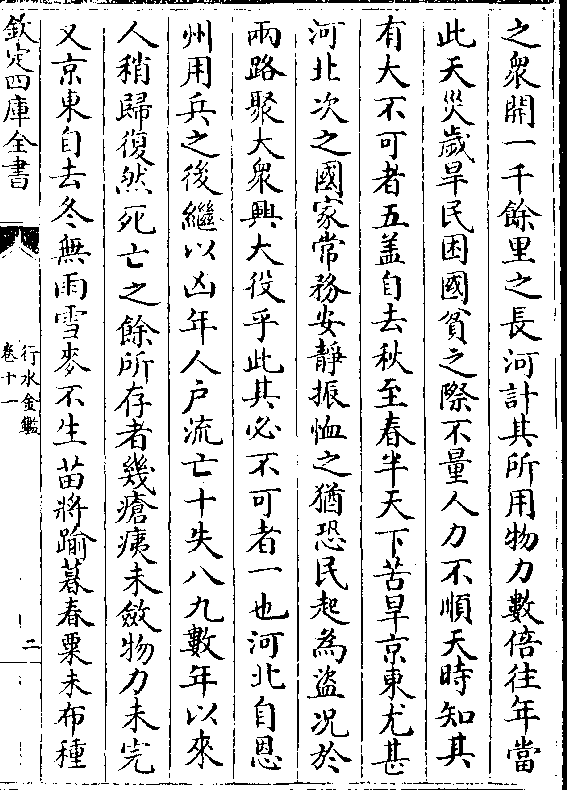 之衆開一千餘里之長河計其所用物力數倍往年當
此天災歲旱民困國貧之際不量人力不順天時知其
有大不可者五盖自去秋至春半天下苦旱京東尤甚
河北次之國家常務安靜振恤之猶恐民起為盜况於
兩路聚大衆興大役乎此其必不可者一也河北自恩
州用兵之後繼以凶年人户流亡十失八九數年以來
人稍歸復然死亡之餘所存者幾瘡痍未斂物力未完
又京東自去冬無雨雪麥不生苗將踰暮春粟未布種
欽定四庫全書
行水金鑑
卷十一
二